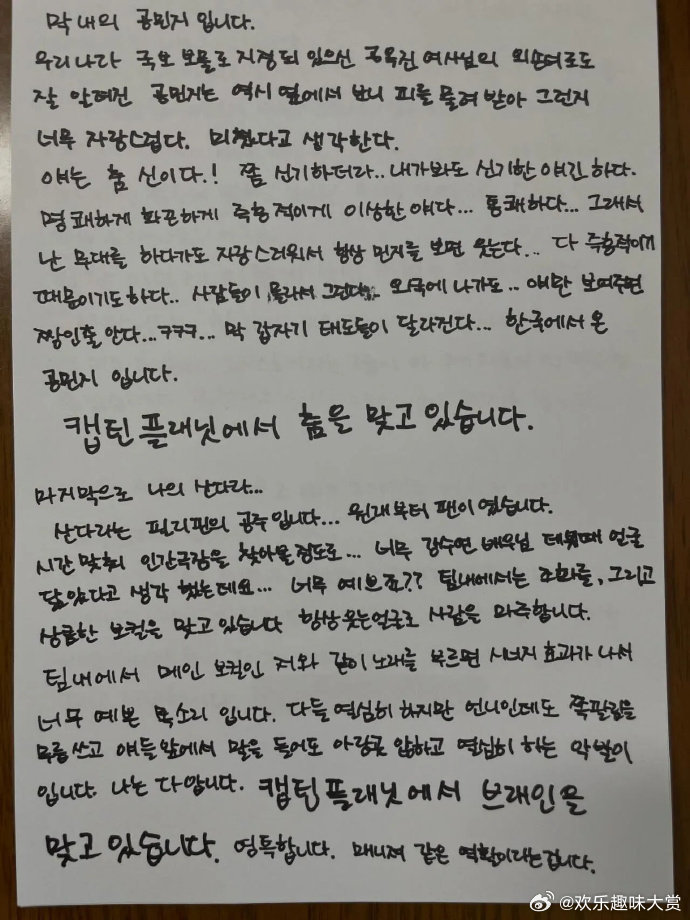 막내의 공민지 입니다.
우리나라 국보 보물로 지정되 있으신 공옥진 여사님의 외손녀로도
잘 알려진 공민지는 역시 옆에서 보니 피를 물려 받아 그런지
너무 자랑스럽다. 미쳤다고 생각한다.
얘는 춤 신이다.! 쫌 신기하더라.. 내가봐도 신기한 얘긴 하다.
명쾌하게 화끈하게 즉흥적이게 이상한 얘다... 통쾌하다... 그래서
난 무대를 하다가도 자랑스러워서 항상 민지를 보면 웃는다... 다 즉흥적이기
때문이기도 하다.. 사람들이 몰라서 그런다.. 외국에 나가도.. 얘만 보여주면
짱인줄 안다...ㅋㅋㅋ... 막 갑자기 태도들이 달라진다... 한국에서 온
공민지 입니다.
캡틴 플래닛에서 춤을 맞고 있습니다.
마지막으로 나의 산다라...
산다라는 필리핀의 공주 입니다... 원래부터 팬이였습니다.
시간 맞춰 인간극장을 찾아볼 정도로... 너무 강수연 배우님 데뷔때 얼굴
닮았다고 생각 했는데요... 너무 예쁘죠?? 팀내에서는 조화를, 그리고
상큼한 보컬을 맞고 있습니다 항상 웃는얼굴로 사람을 마주합니다.
팀내에서 메인 보컬인 저와 같이 노래를 부르면 시너지 효과가 나서
너무 예쁜 목소리 입니다. 다들 열심히 하지만 언니인데도 쪽팔림을
무릅 쓰고 얘들앞에서 말을 들어도 아랑곳 않하고 열심히 하는 악발이
입니다. 나는 다 압니다. 캡틴플래닛에서 브레인을
맞고 있습니다. 영특합니다. 매니져 같은 역활이라는겁니다.
@欢乐趣味大赏